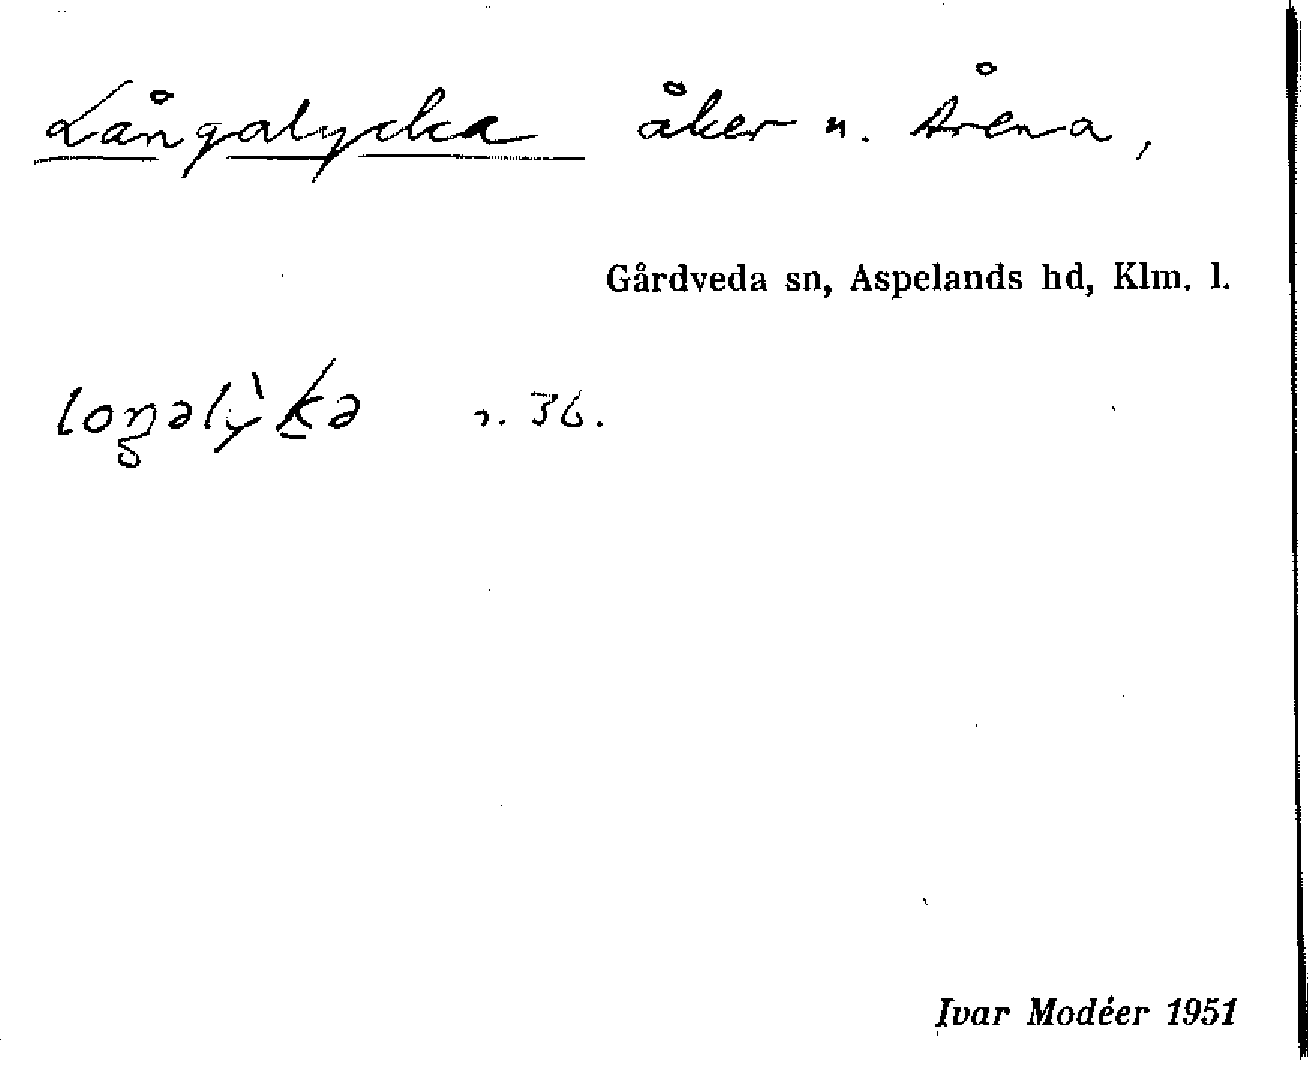 Långalycka åker n. Årena,
Gårdveda sn, Aspelands hd, Klm. l.
loŋəlỳkə n. 36.
Ivar Modéer 1951